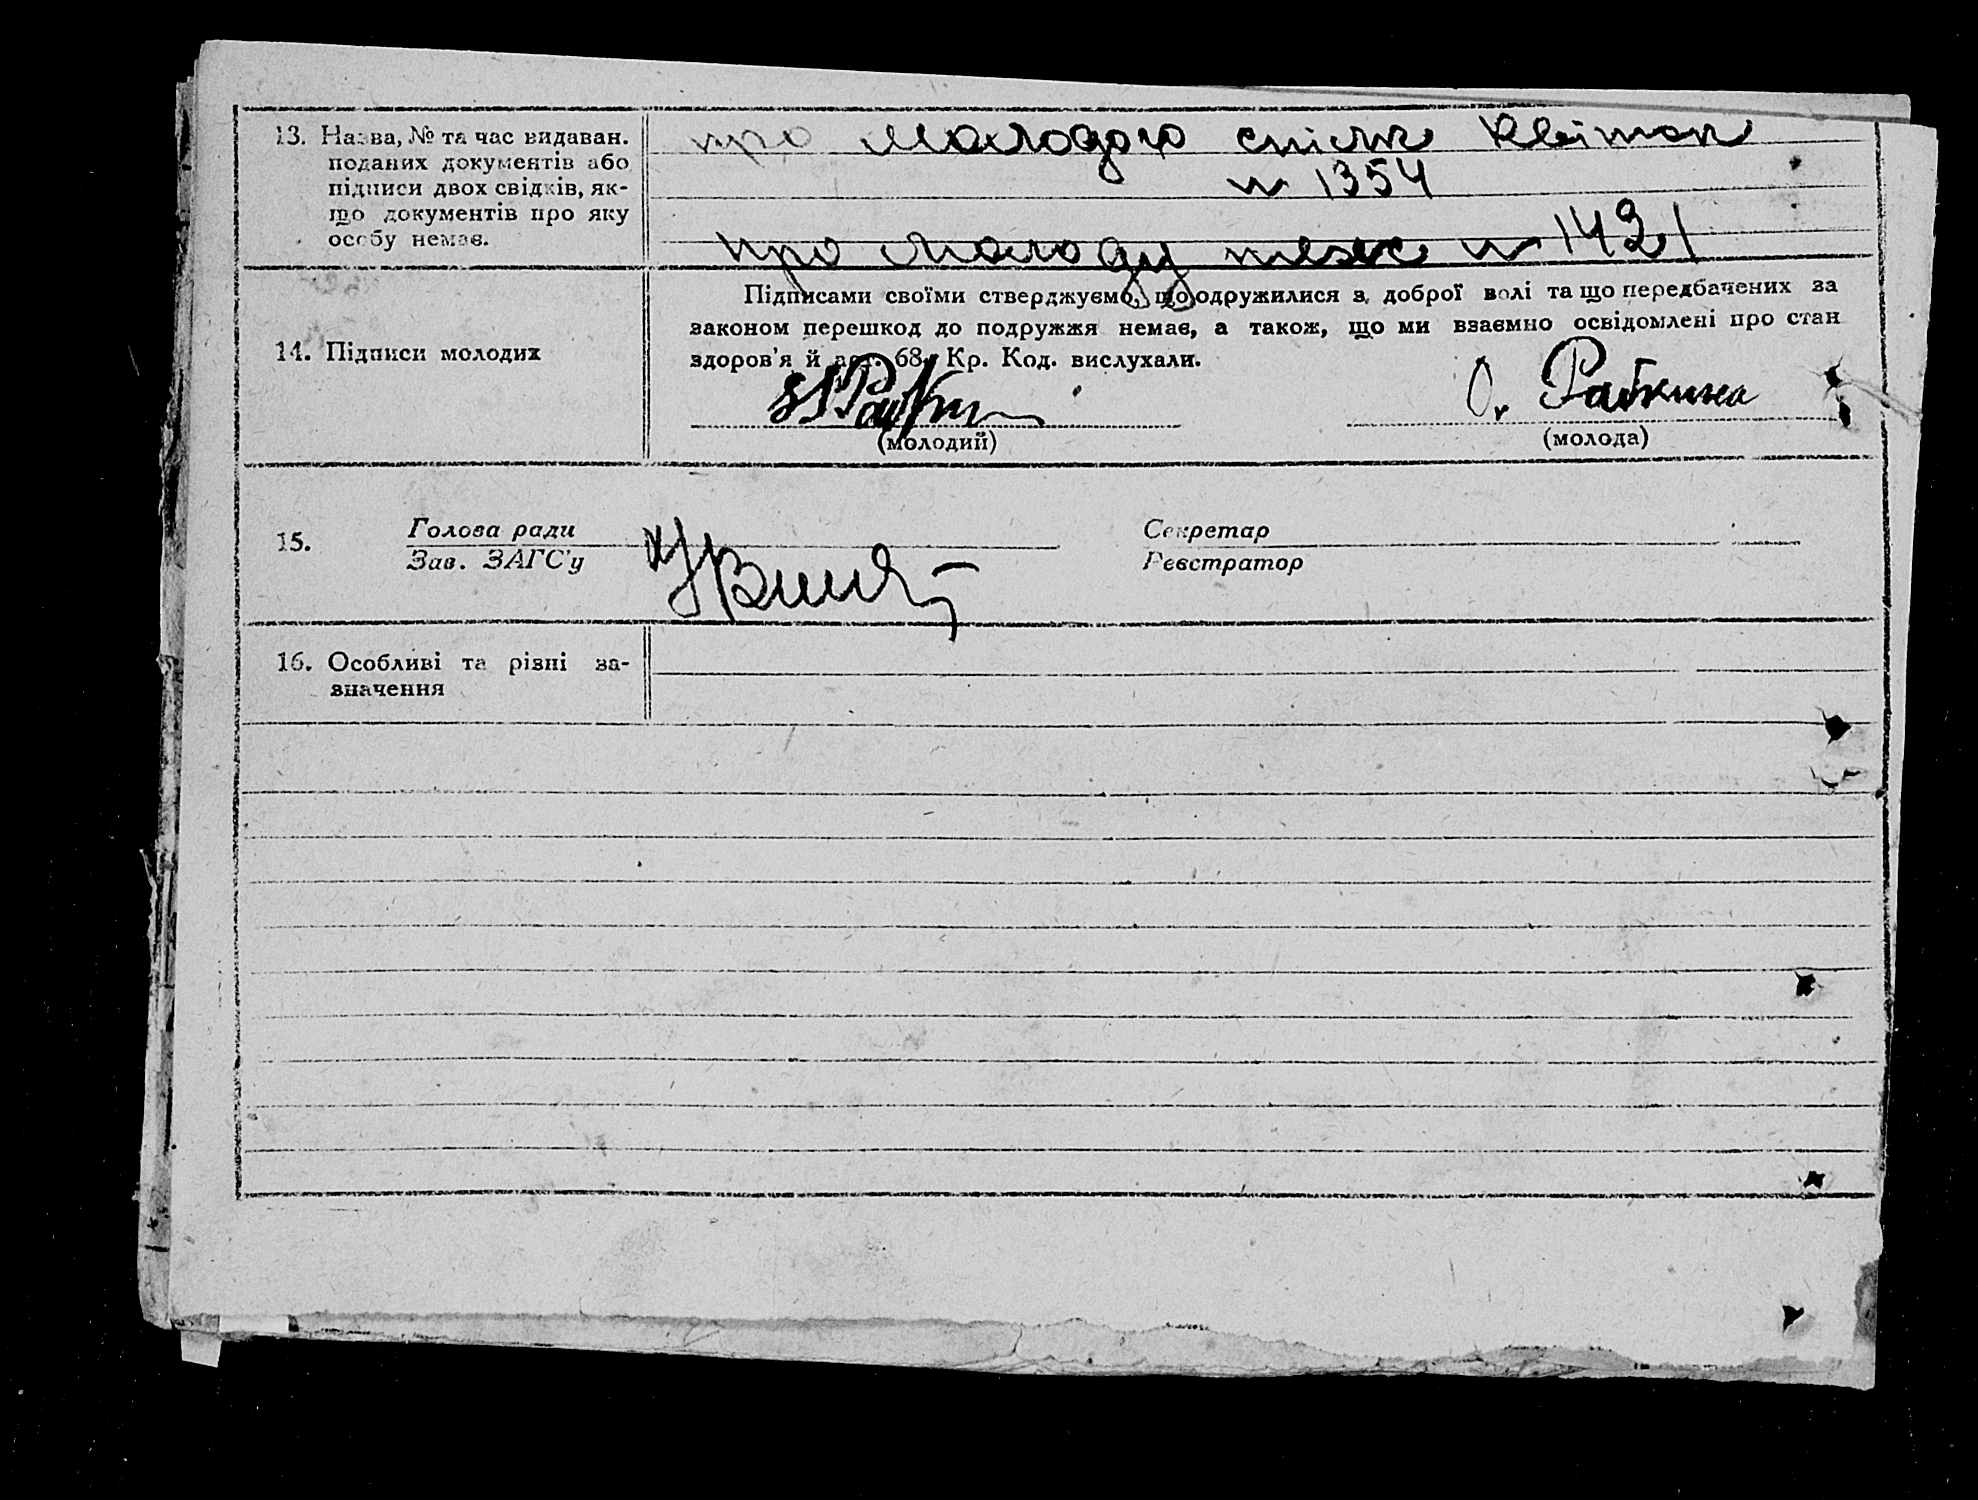 13. Назва, № та час видаван.
поданих документів або
підписи двох свідків, як-
що документів про яку
особу немає.
про молодого спілк квиток
№ 1354
про молоду теж № 1421
14. Підписи молодих
Підписами своїми стверджуємо, що одружилися з доброї волі та що передбачених за
законом перешкод до подружжя немає, а також, що ми взаємно освідомлені про стан
здоров'я й арт. 68 Кр. Код. вислухали.
О. Рабкина
(молодий)
(молода)
15.
Голова ради
Зав. ЗАГС'у
Секретар
Реєстратор
16. Особливі та різні за-
значення